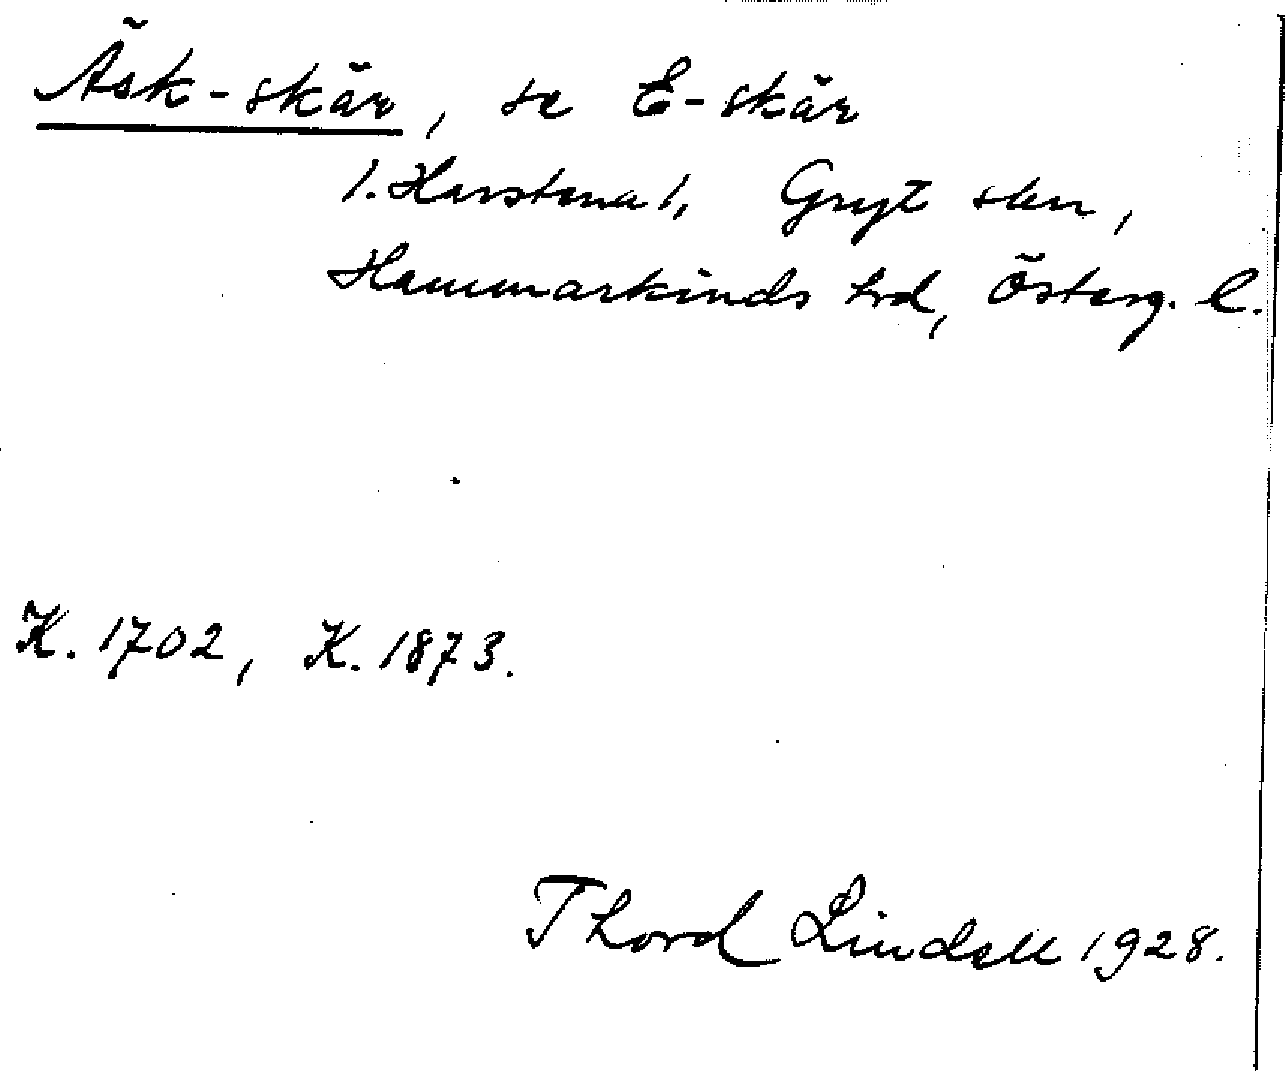 Äsk-skär, se E-skär
1. Harstena 1, Gryt skn,
Hammarkinds hrd, Österg. l.
K. 1702, K. 1873.
Thord Lindell 1928.